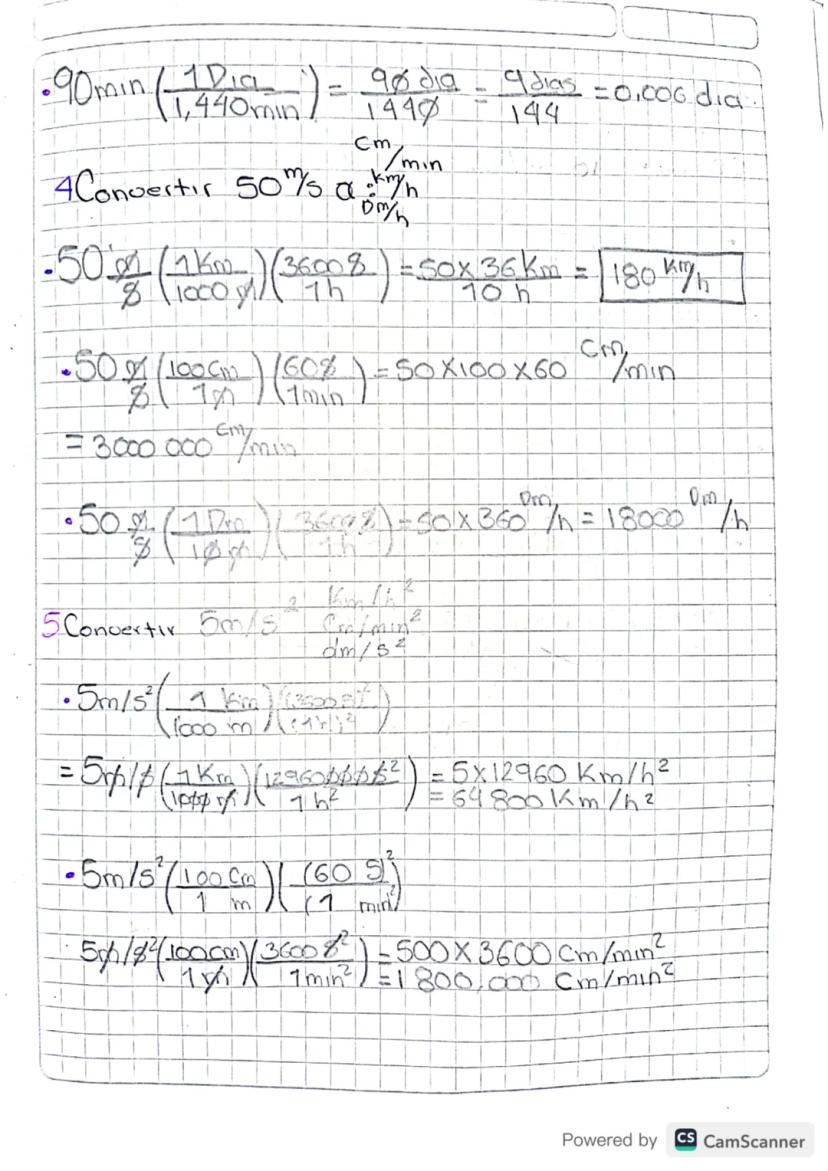 .90min (1 Dia / 1,440min) = 90 dia / 1440 = 9 dias / 144 = 0.006 dia.
Cm/min
4 Convertir 50 m/s a : Km/h
Dm/h
.50 m/s (1 Km / 1000 m)(3600 s / 1 h) = 50 x 36 Km / 10 h = 180 Km/h
.50 m/s (100 Cm / 1 m)(60 s / 1 min) = 50 X 100 X 60 Cm/min
= 3000 000 Cm/min
.50 m/s (1 Dm / 10 m)(3600 s / 1 h) = 50 X 360 Dm/h = 18000 Dm/h
Km/h²
5 Convertir 5m/s² Cm/min²
dm/s²
.5m/s² (1 Km / 1000 m)((3600 s)² / (1 h)²)
= 5m/s² (1 Km / 1000 m)(12960000 s² / 1 h²) = 5 X 12960 Km/h²
= 64 800 Km/h²
.5m/s² (100 Cm / 1 m)((60 S)² / (1 min)²)
5m/s² (100 cm / 1 m)(3600 s² / 1 min²) = 500 X 3600 Cm/min²
= 1 800,000 Cm/min²
Powered by CS CamScanner